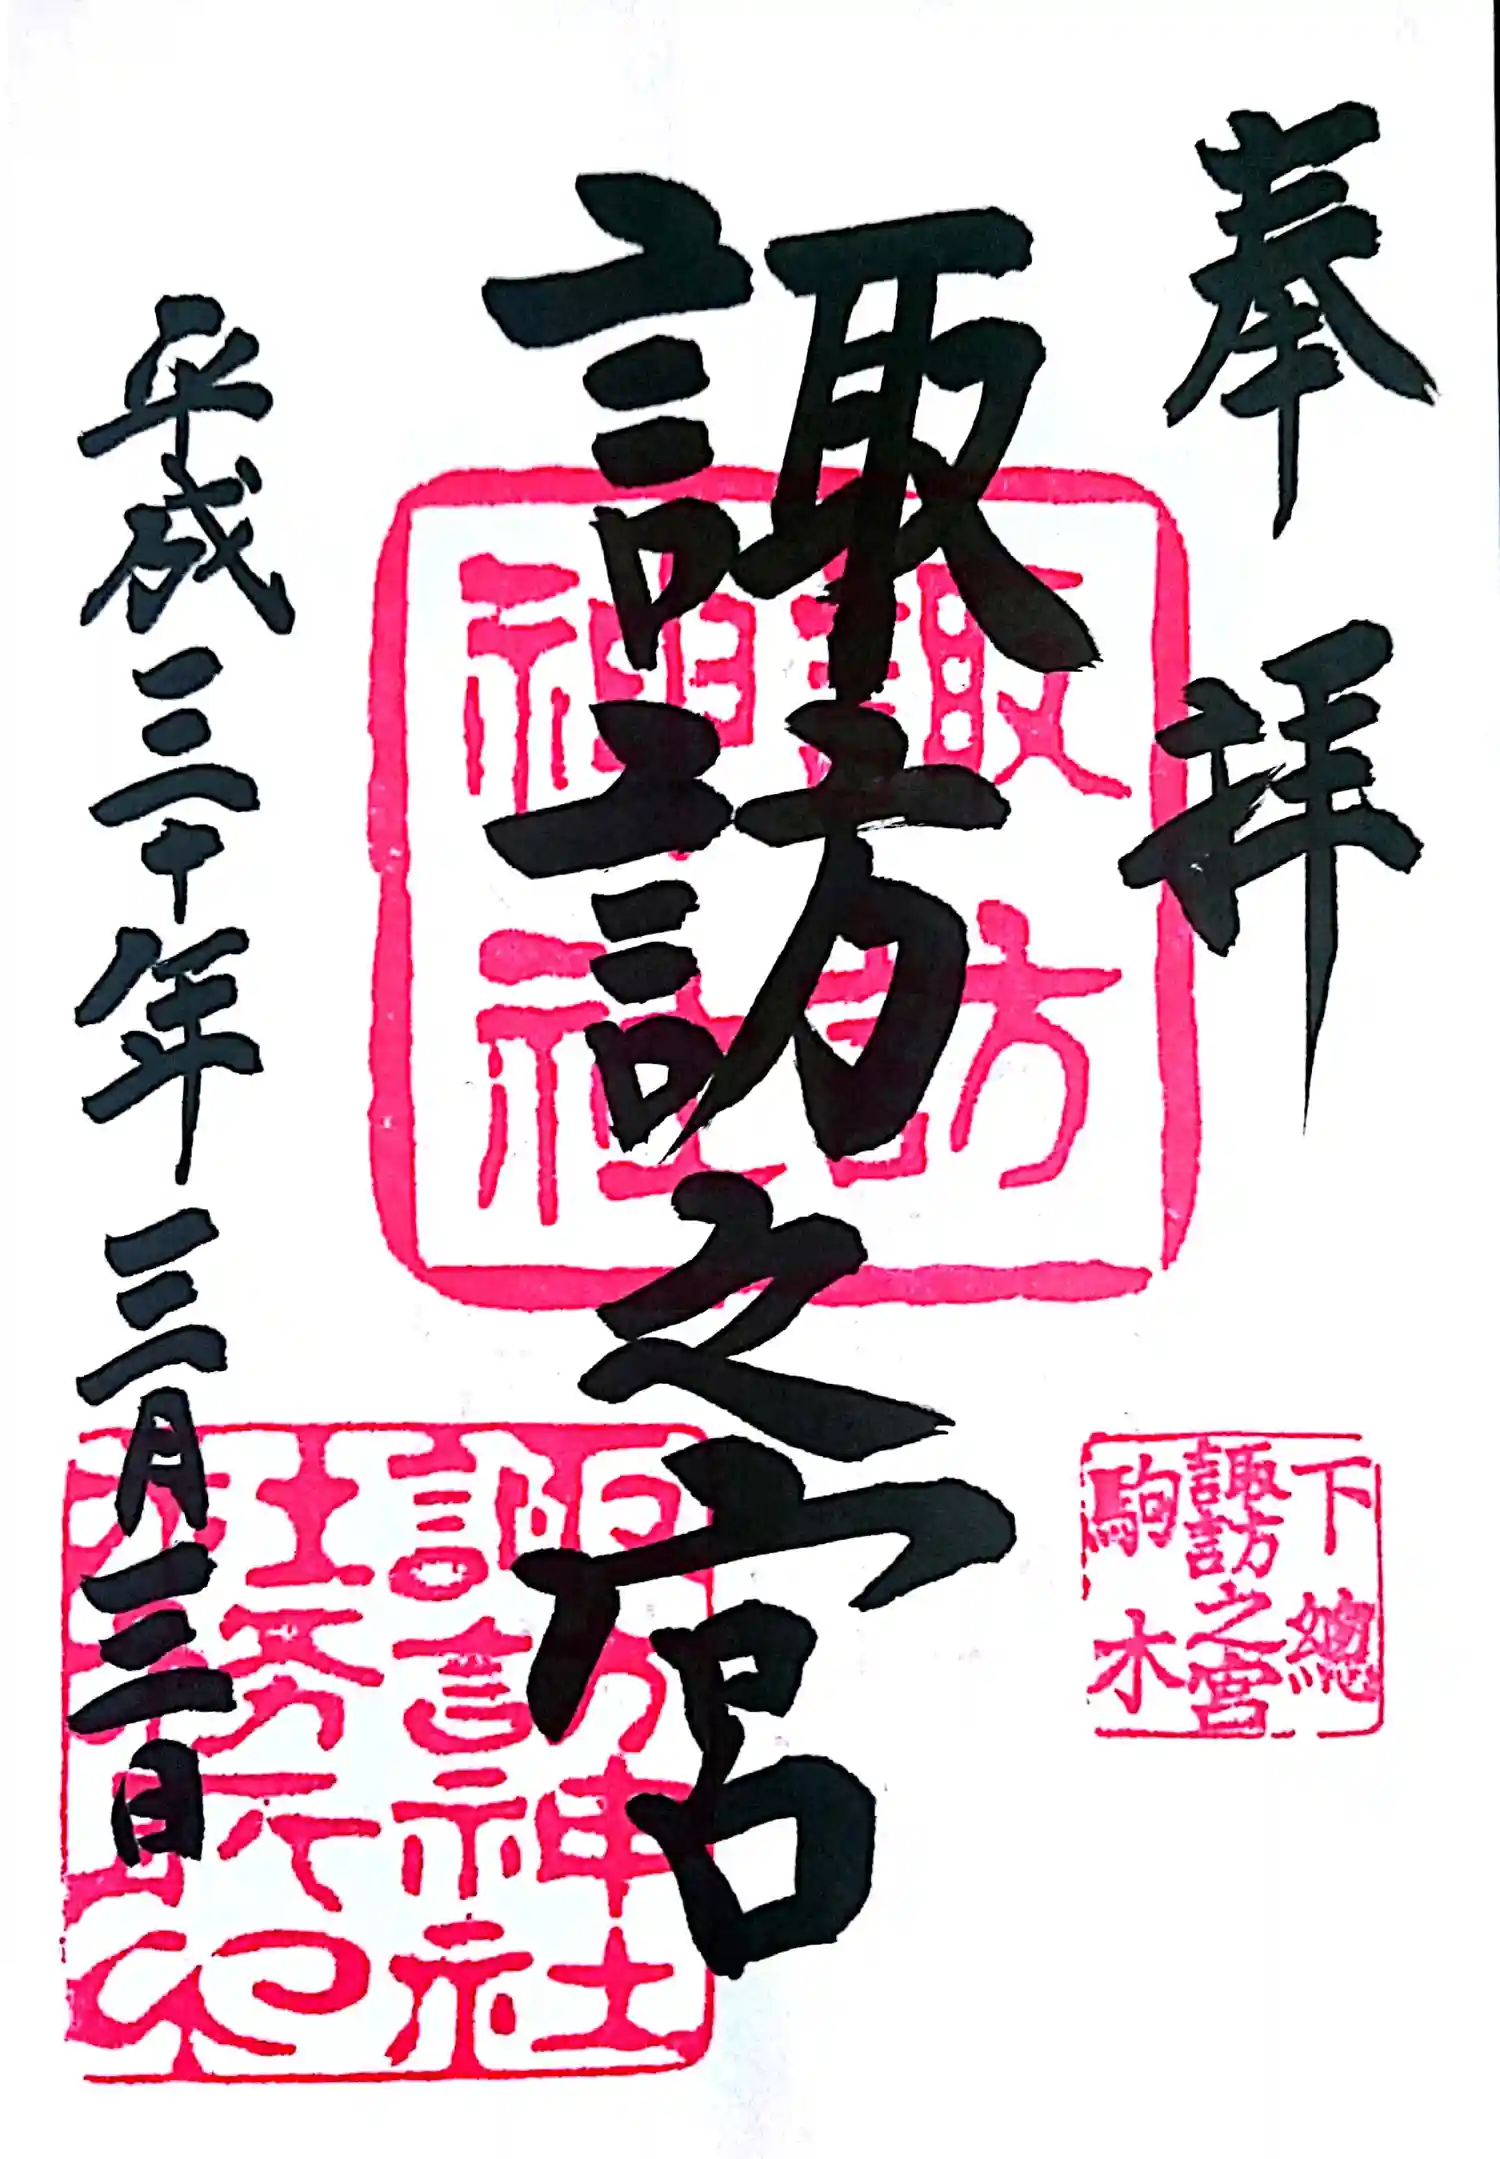 奉拝
下總
諏訪之宮
駒木
諏訪之宮
諏訪
神社
平成三十年三月三日
諏訪神社
社務所印